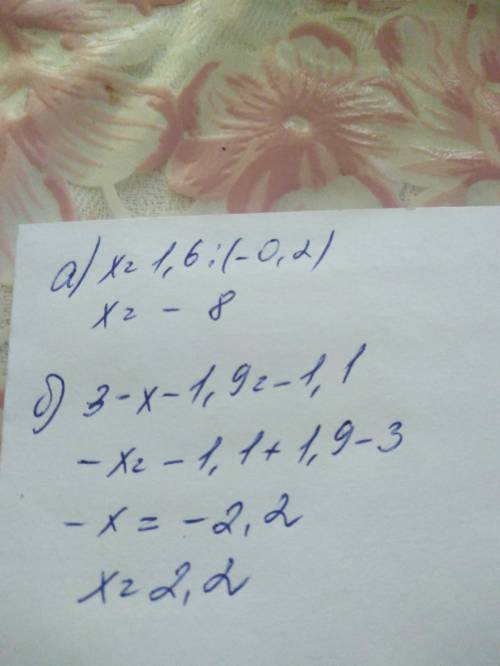 а) x=1,6:(-0,2)
x= - 8
б) 3-x-1,9=-1,1
-x=-1,1+1,9-3
-x=-2,2
x=2,2